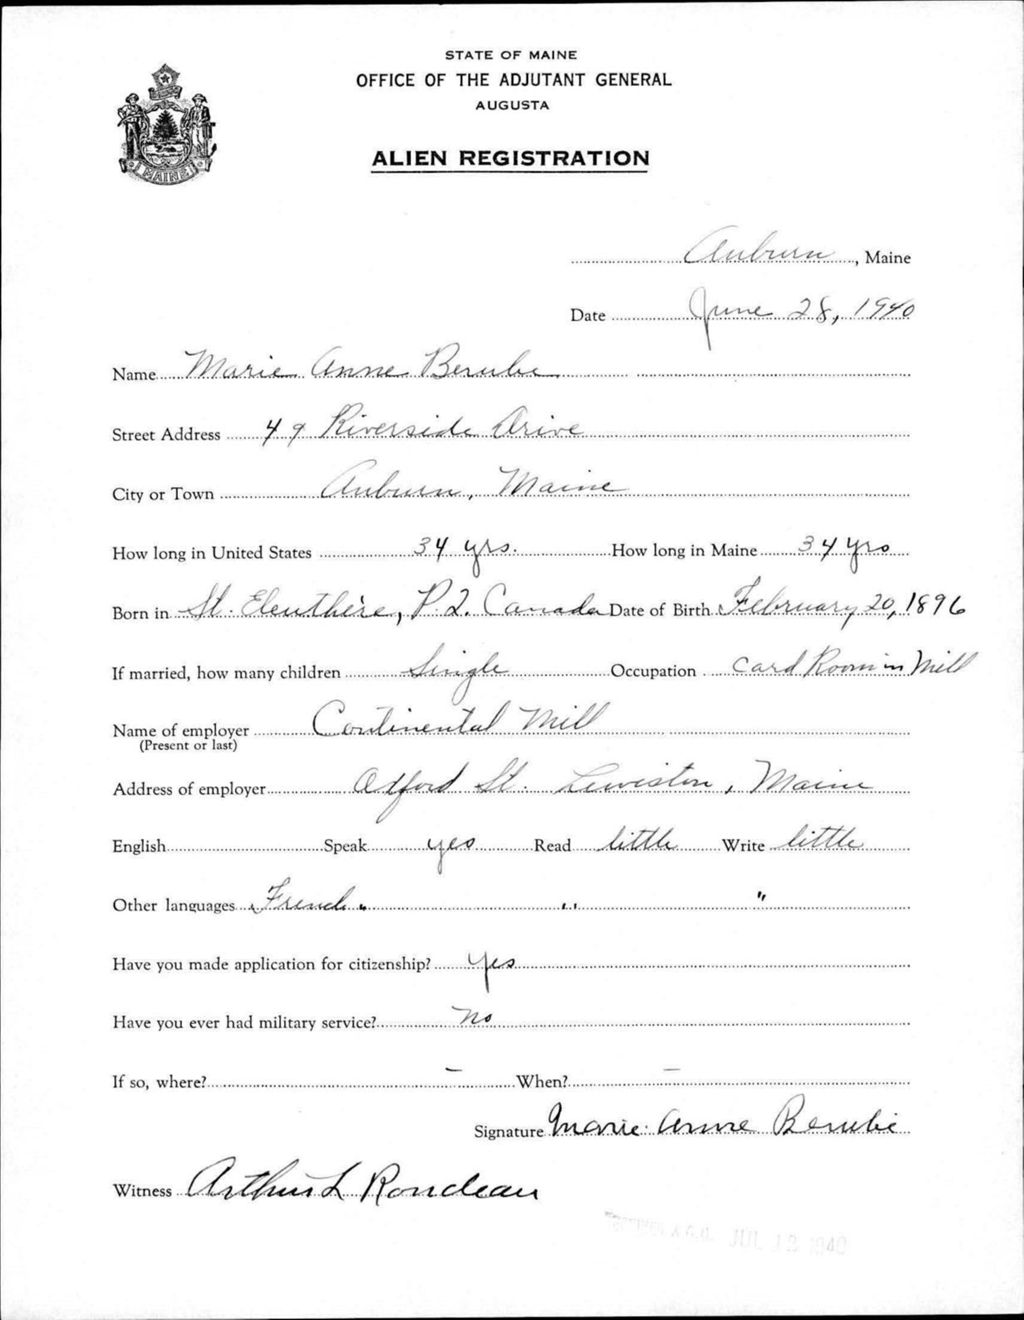 STATE OF MAINE
OFFICE OF THE ADJUTANT GENERAL
AUGUSTA
ALIEN REGISTRATION
MAINE
Auburn, Maine
Date June 28, 1940
Name Marie Anne Berube
Street Address 49 Riverside Drive
City or Town Auburn, Maine
How long in United States 34 yrs. How long in Maine 34 yrs
Born in St. Eleuthère, P.Q. Canada Date of Birth February 20, 1896
If married, how many children Single Occupation Card Room in Mill
Name of employer Continental Mill
(Present or last)
Address of employer Oxford St. Lewiston, Maine
English Speak yes Read little Write little
Other languages French " " "
Have you made application for citizenship? Yes
Have you ever had military service? No
If so, where? — When? —
Signature Marie Anne Berube
Witness Arthur L Rondeau
JUL 12 1940